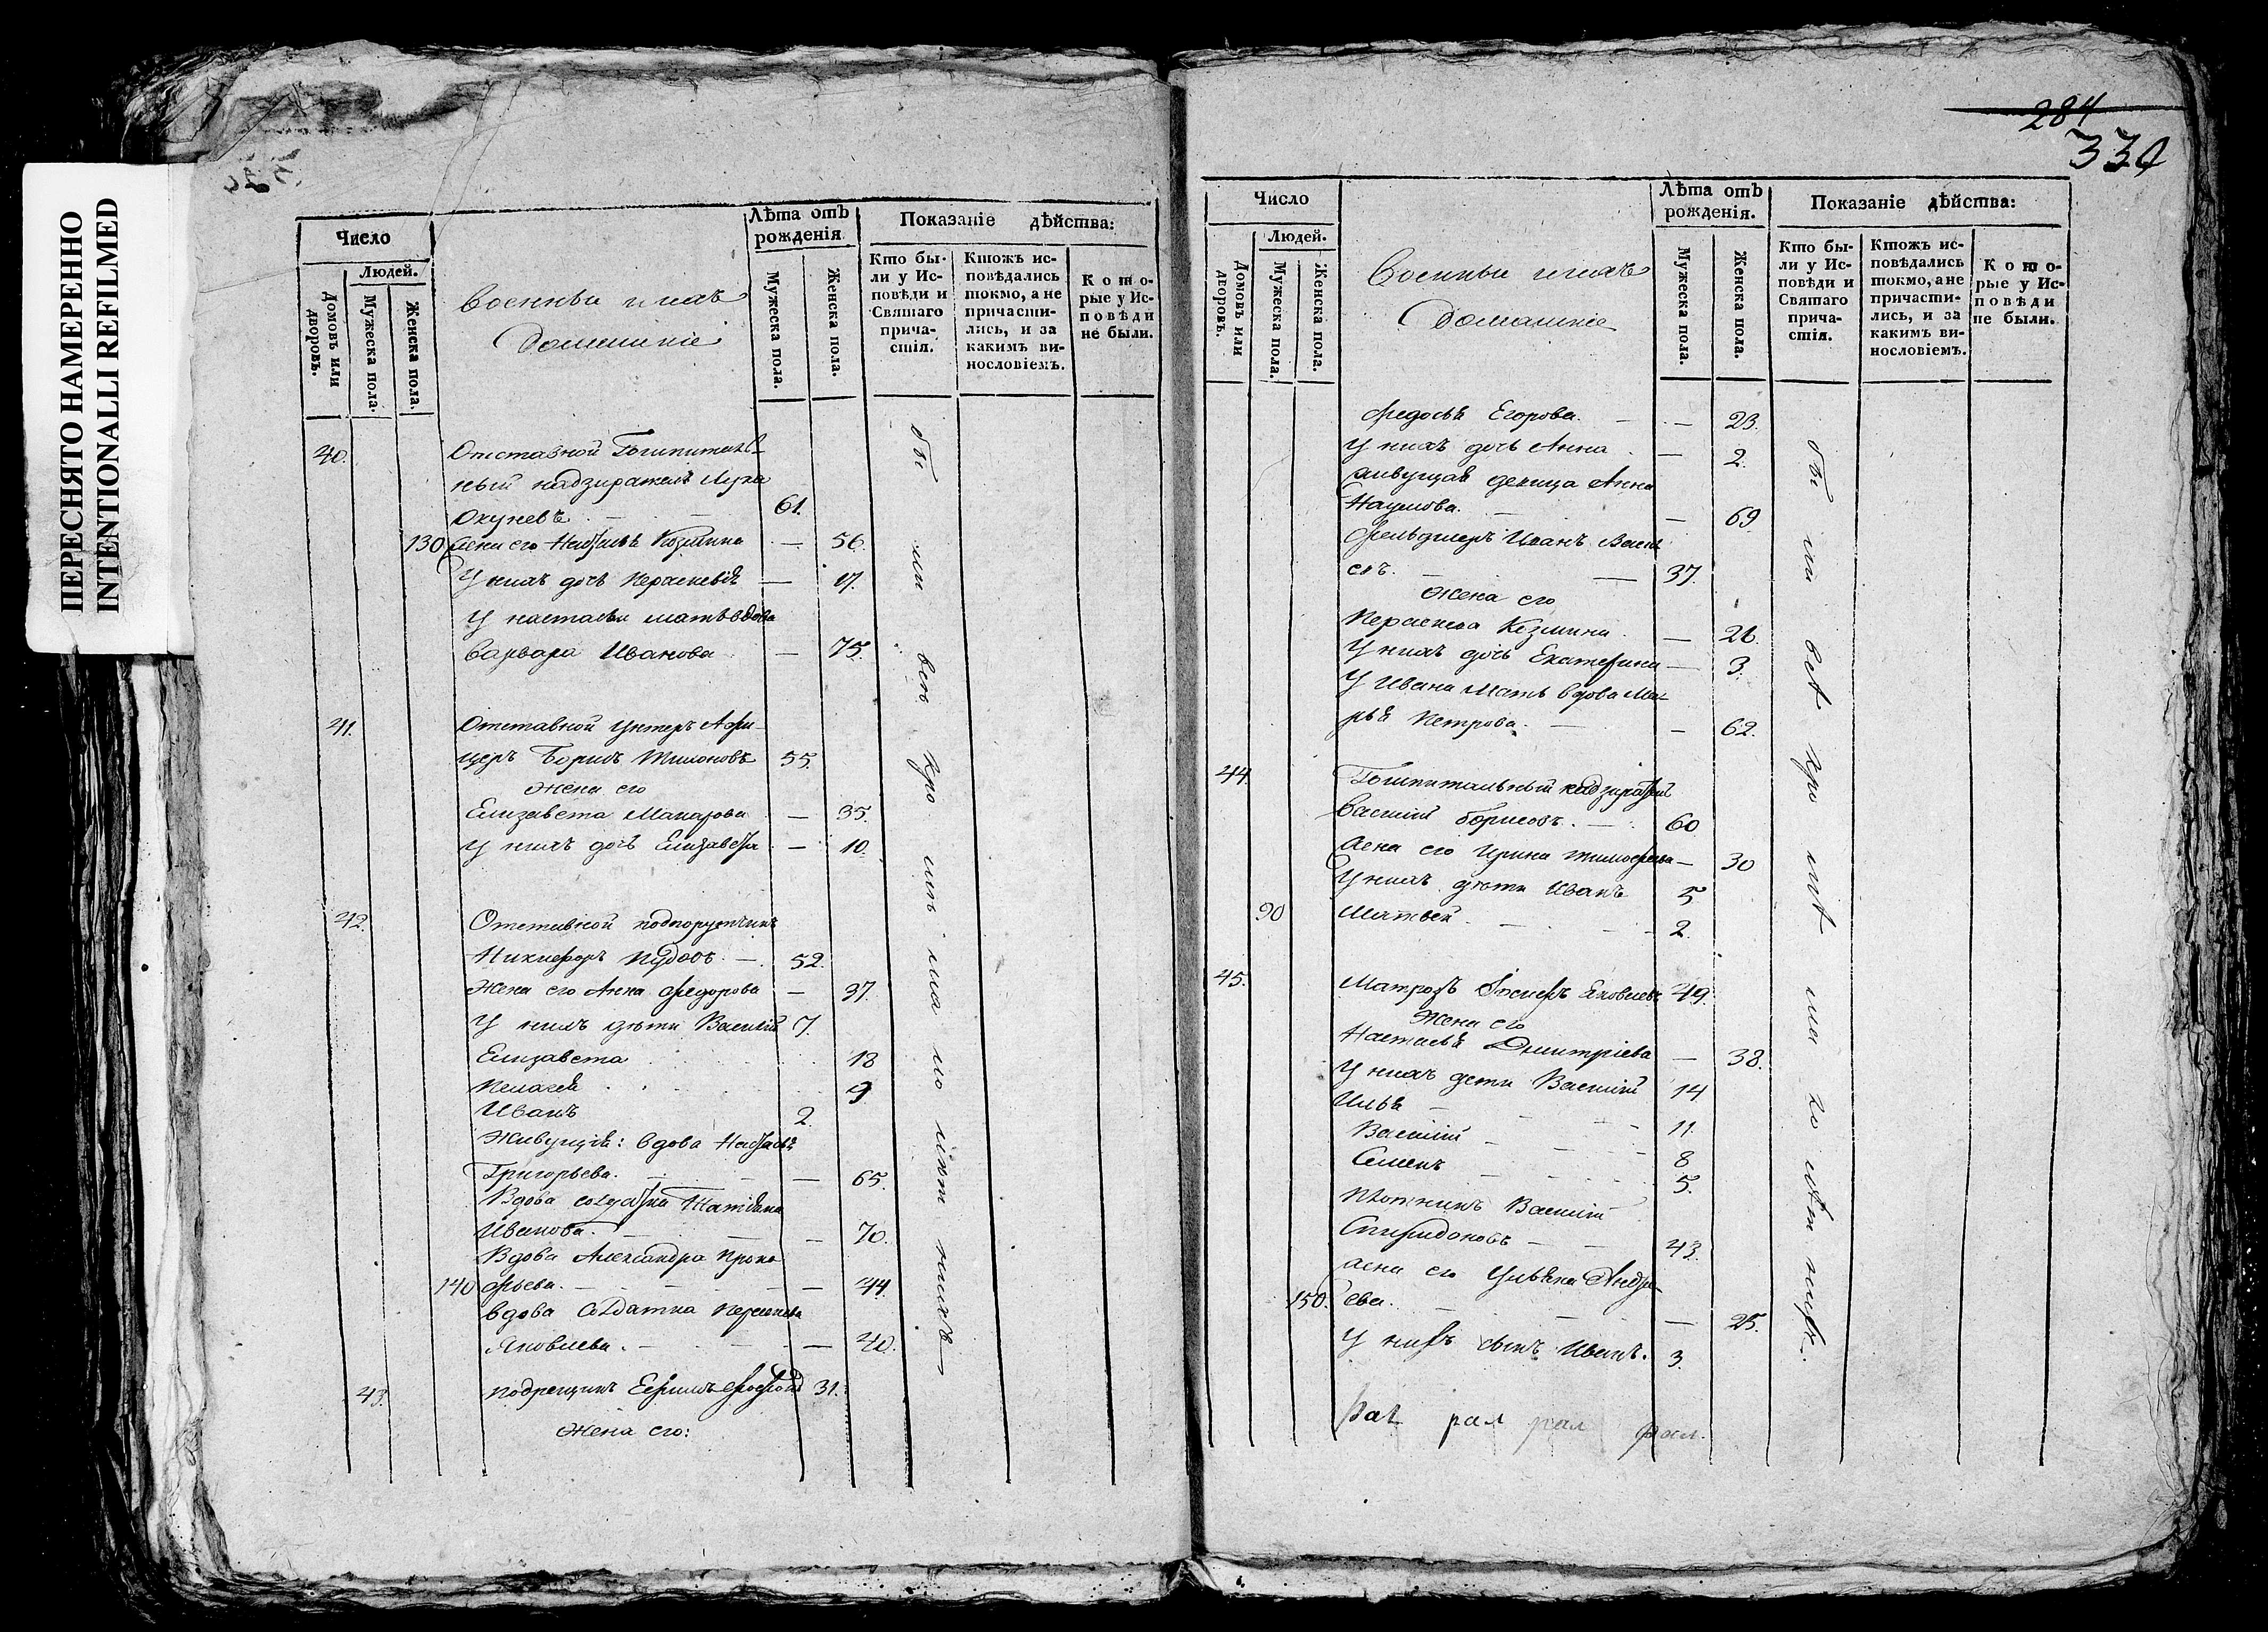 ПЕРЕСНЯТО НАМЕРЕННО
INTENTIONALLI REFILMED
Число
Людей.
Домовъ или дворовъ.
Мужеска пола.
Женска пола.
Военныи и ихъ
Домашніе
Лѣта отъ рожденія
Мужеска пола.
Женска пола.
Показаніе дѣйства:
Кто бы-
ли у Ис-
повѣди и
Святаго
прича-
стія.
Ктожъ ис-
повѣдались
токмо, а не
причасти-
лись, и за
какимъ ви-
нословіемъ.
Кото-
рые у Ис-
повѣди
не были.
40. Отставной Гошпиталь-
ный надзиратель Лука
Окуневъ 61.
130 Жена его Настасья Козмина — 56.
У нихъ дочь Параскевія — 17.
У настасьи мать вдова
Варвара Иванова — 75.
41. Отставной Унтеръ Афи-
церъ Борисъ Тихоновъ 55.
Жена его
Елизавета Макарова — 35.
У нихъ дочь Елизавета — 10.
42. Отставной подпорутчикъ
Никифоръ Пудовъ — 52.
Жена его Анна Федорова — 37.
У нихъ дѣти Василій 7.
Елизавета 18
Пелагея 9
Иванъ 2.
Живущія: вдова Настасья
Григорьева. — 65.
Вдова солдатка Татіана
Иванова. — 70.
Вдова Александра Проко-
140 фьева. — 44.
вдова Солдатка Параскева
Яковлева. — 40.
43. подрещикъ Ефимъ 31.
Жена его:
284
330
Число
Людей.
Домовъ или дворовъ.
Мужеска пола.
Женска пола.
Военныи и ихъ
Домашніе
Лѣта отъ рожденія.
Мужеска пола.
Женска пола.
Показаніе дѣйства:
Кто бы-
ли у Ис-
повѣди и
Святаго
прича-
стія.
Ктожъ ис-
повѣдались
токмо, а не
причасти-
лись, и за
какимъ ви-
нословіемъ.
Кото-
рые у Ис-
повѣди
не были.
Федосья Егорова. — 23.
У нихъ дочь Анна — 2.
Живущая девица Анна
Наумова. — 69
Фельдшеръ Иванъ Васил
евъ. — 37.
Жена его
Параскева Козмина. —
У нихъ дочь Екатерина — 3.
У Ивана Мать вдова Ма-
рья Петрова. — 62.
44. Гошпитальный надзиратель
Василій Борисовъ. — 60
Жена его Ирина Тимофеева — 30
У нихъ дѣти Иванъ 5
90 Матвей 2.
45. Матрозъ Яковлевъ 49.
Жена его
Настасья Дмитріева — 38.
У нихъ дети Василій 14
Илья — 11.
Василій — 8
Семенъ — 5.
плотникъ Василій
Спиридоновъ — 43.
жена его Ульяна Андре-
150. ева. — 25.
У нихъ сынъ Иванъ. 3.
рал рал рал